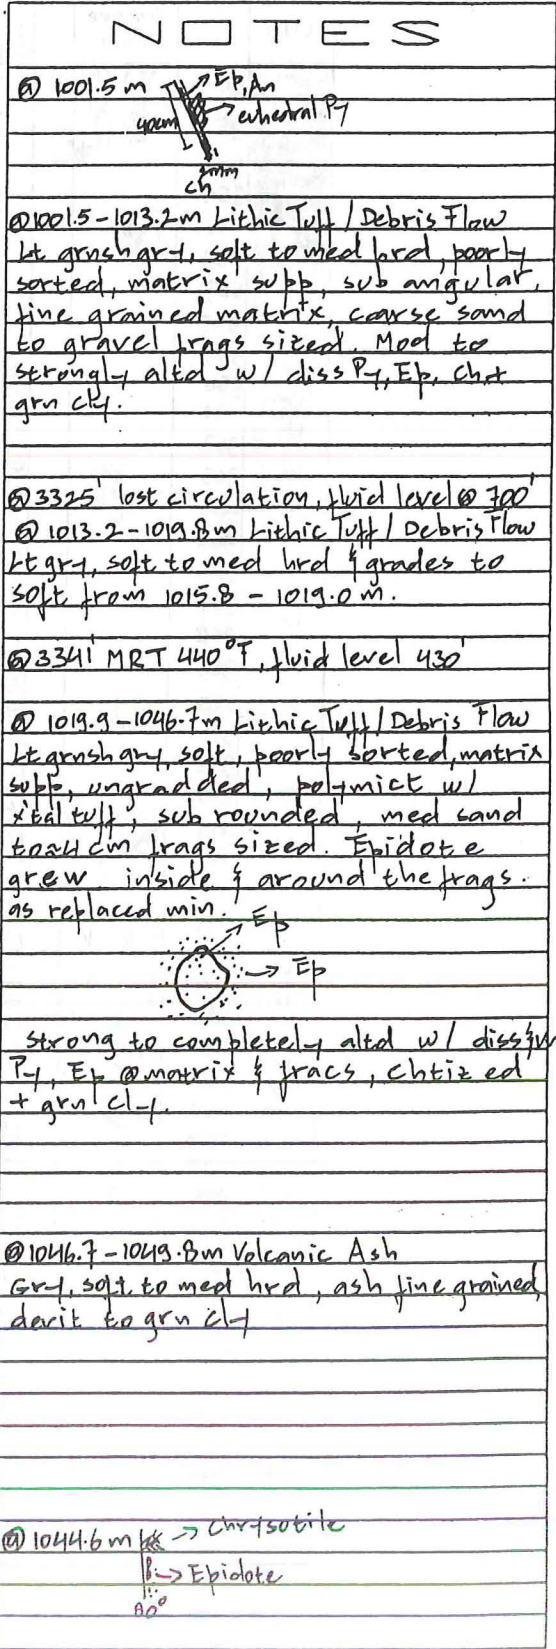 NOTES
@ 1001.5 m
Ep, An
euhedral Py
40cm
2mm
Ch
@1001.5-1013.2m Lithic Tuff / Debris Flow
Lt grnsh gry, soft to med hrd, poorly
sorted, matrix supp, sub angular,
fine grained matrix, coarse sand
to gravel frags sized. Mod to
strongly altd w/ diss Py, Ep, Ch +
grn cly.
@ 3325' lost circulation, fluid level @ 700'
@ 1013.2-1019.8m Lithic Tuff / Debris Flow
Lt gry, soft to med hrd & grades to
soft from 1015.8 - 1019.0 m.
@ 3341' MRT 440°F, fluid level 430'
@ 1019.9-1046.7m Lithic Tuff / Debris Flow
Lt grnsh gry, soft, poorly sorted, matrix
supp, ungradded, polymict w/
x'tal tuff, sub rounded, med sand
to ≈4 cm frags sized. Epidote
grew inside & around the frags.
as replaced min.
Ep
Ep
strong to completely altd w/ diss &
Py, Ep @ matrix & fracs, chtized
+ grn cly.
@ 1046.7-1049.8m Volcanic Ash
Gry, soft to med hrd, ash fine grained,
devit to grn cly
@ 1044.6 m
Chrysotile
Epidote